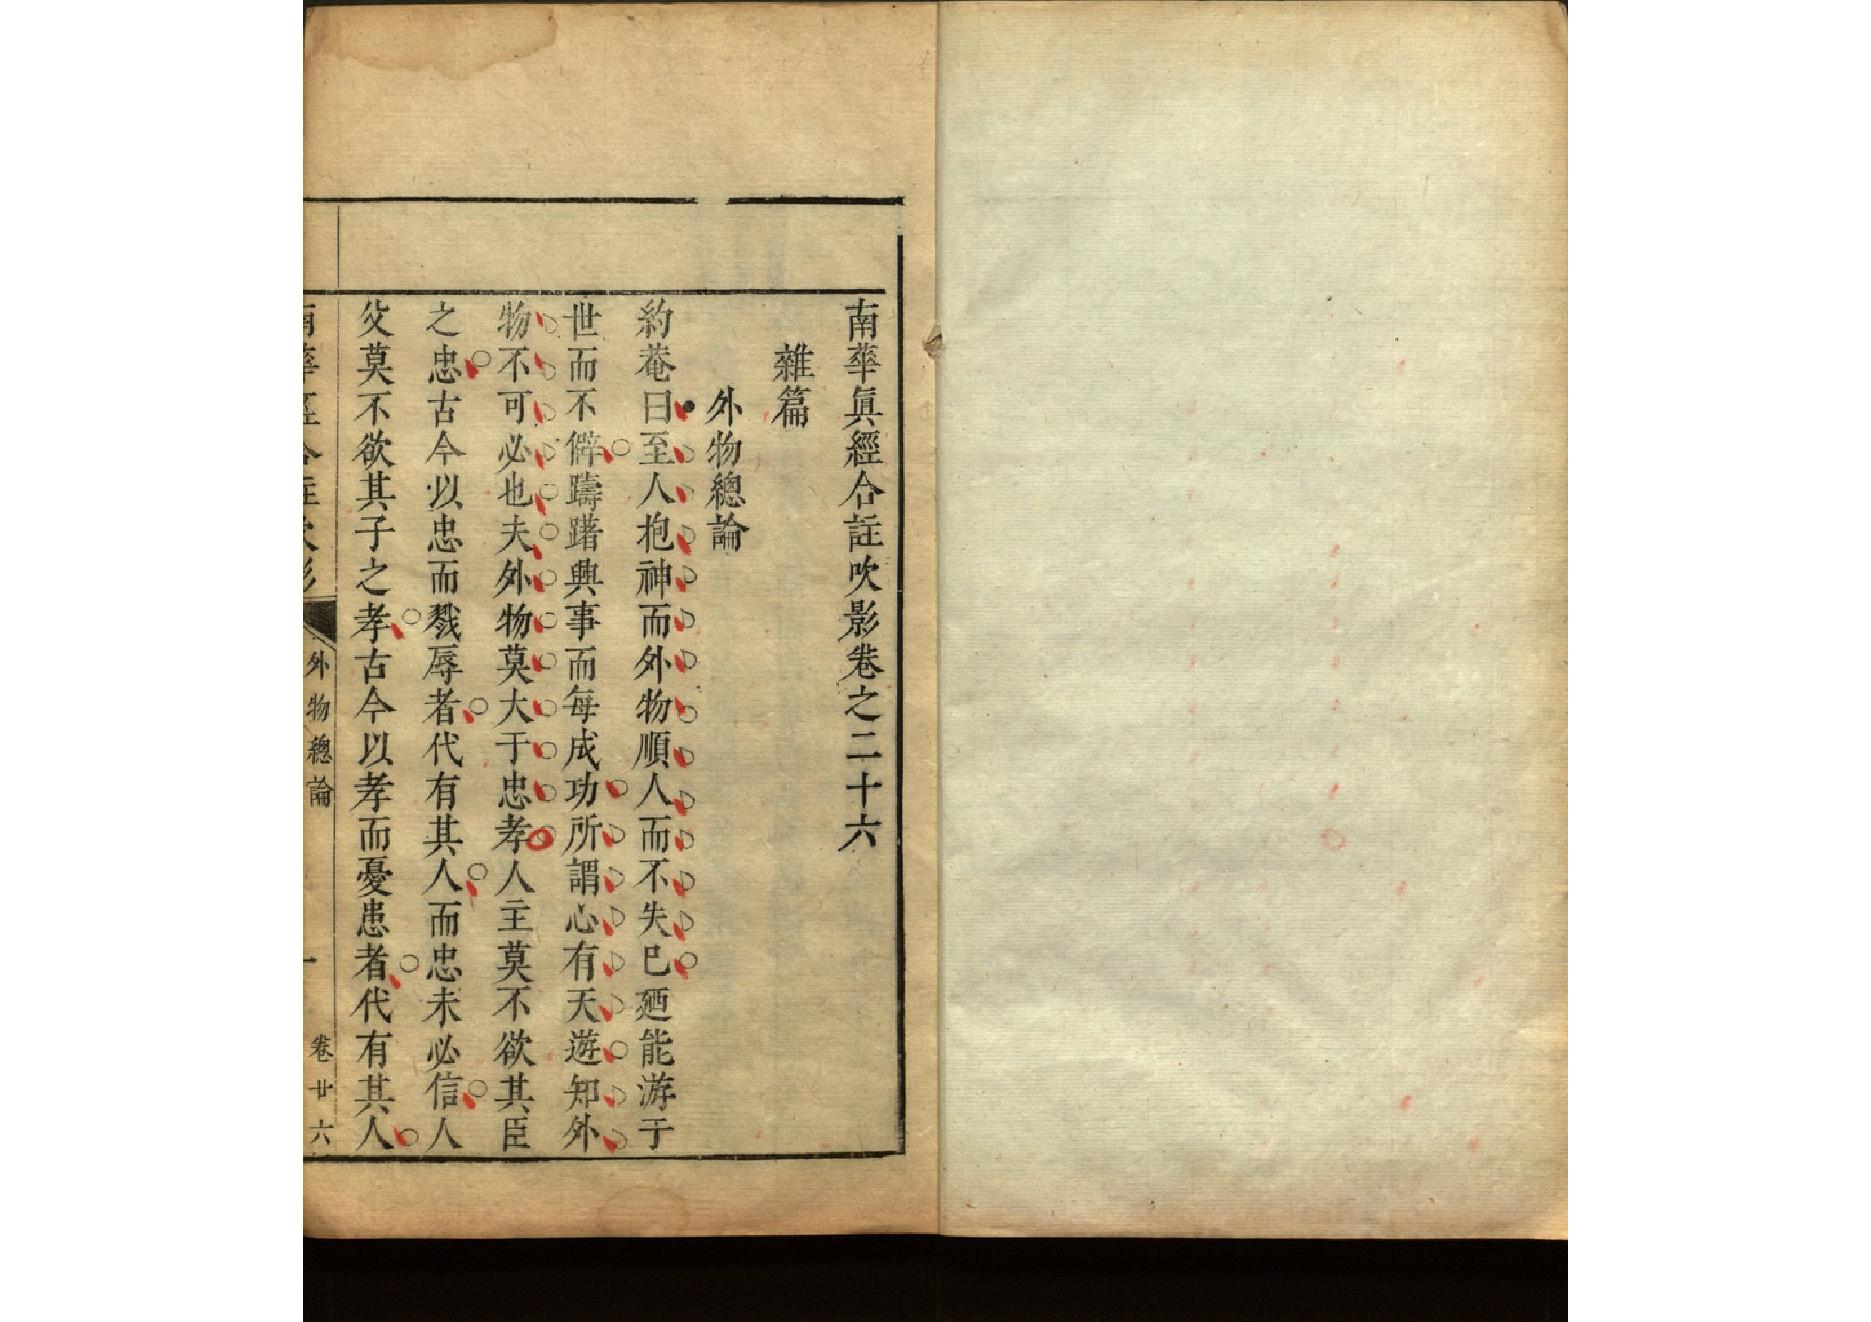 南華眞經合註吹影卷之二十六
雜篇
外物總論
約菴曰至人抱神而外物順人而不失已廼能游于
世而不僻躊躇興事而每成功所謂心有天遊知外
物不可必也夫外物莫大于忠孝人主莫不欲其臣
之忠古今以忠而戮辱者代有其人而忠未必信人
父莫不欲其子之孝古今以孝而憂患者代有其人
外物總論
一
卷廿六